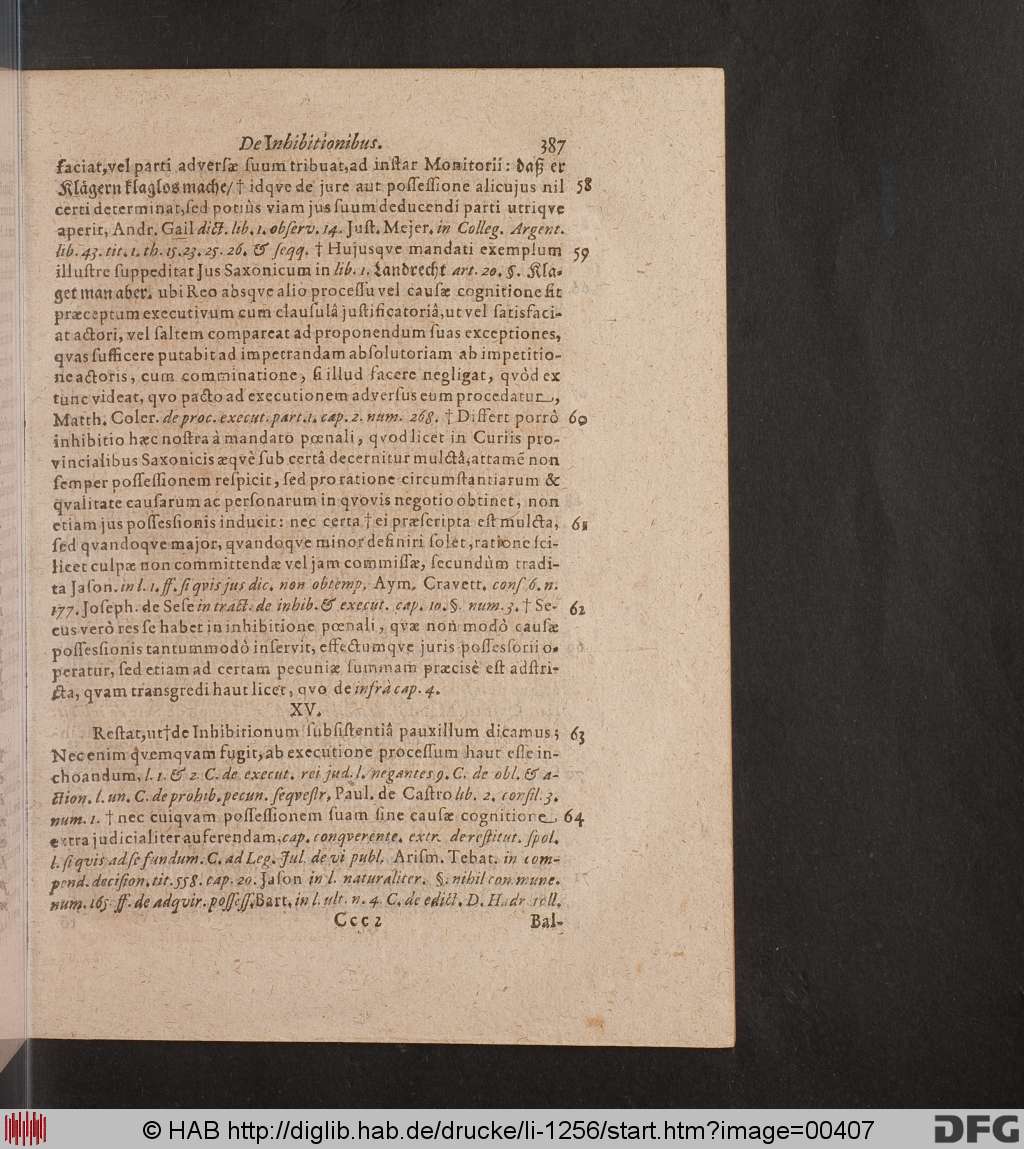 De Inhibitionibus. 387
faciat, vel parti adversæ suum tribuat, ad instar Monitorii: daß er
Klägern klaglos mache/ † idqve de jure aut possessione alicujus nil 58
certi determinat, sed potiùs viam jus suum deducendi parti utriqve
aperit, Andr. Gail dict. lib. 1. observ. 14. Just. Mejer. in Colleg. Argent.
lib. 43. tit. 1. th. 15. 23. 25. 26. & seqq. † Hujusqve mandati exemplum 59
illustre suppeditat Jus Saxonicum in lib. 1. Landrecht art. 20. §. Kla-
get man aber. ubi Reo absqve alio processu vel causæ cognitione fit
præceptum executivum cum clausulâ justificatoriâ, ut vel satisfaci-
at actori, vel saltem compareat ad proponendum suas exceptiones,
qvas sufficere putabit ad impetrandam absolutoriam ab impetitio-
ne actoris, cum comminatione, si illud facere negligat, qvòd ex
tunc videat, qvo pacto ad executionem adversus eum procedatur,
Matth. Coler. de proc. execut. part. 1. cap. 2. num. 268. † Differt porrò 60
inhibitio hæc nostra à mandato pœnali, qvod licet in Curiis pro-
vincialibus Saxonicis æqvè sub certâ decernitur mulctâ, attamē non
semper possessionem respicit, sed pro ratione circumstantiarum &
qvalitate causarum ac personarum in qvovis negotio obtinet, non
etiam jus possessionis inducit: nec certa † ei præscripta est mulcta, 61
sed qvandoqve major, qvandoqve minor definiri solet, ratione sci-
licet culpæ non committendæ vel jam commissæ, secundùm tradi-
ta Jason. in l. 1. ff. si qvis jus dic. non obtemp. Aym. Cravett. cons. 6. n.
177. Joseph. de Sese in tract. de inhib. & execut. cap. 10. §. num. 3. † Se- 62
cus verò res se habet in inhibitione pœnali, qvæ non modò causæ
possessionis tantummodò inservit, effectumqve juris possessorii o-
peratur, sed etiam ad certam pecuniæ summam præcisè est adstri-
cta, qvam transgredi haut licet, qvo de infrà cap. 4.
XV.
Restat, ut † de Inhibitionum subsistentiâ pauxillum dicamus; 63
Nec enim qvemqvam fugit, ab executione processum haut esse in-
choandum, l. 1. & 2. C. de execut. rei jud. l. negantes 9. C. de obl. & a-
ction. l. un. C. de prohib. pecun. seqvestr, Paul. de Castro lib. 2. consil. 3.
num. 1. † nec cuiqvam possessionem suam sine causæ cognitione, 64
extra judicialiter auferendam, cap. conqverente. extr. de restitut. spol.
l. si qvis ad se fundum. C. ad Leg. Jul. de vi publ. Arism. Tebat. in com-
pend. decision. tit. 558. cap. 20. Jason in l. naturaliter. §. nihil commune.
num. 165. ff. de adqvir. possess. Bart. in l. ult. n. 4. C. de edict. D. Hadr. toll.
Cccc 2 Bal-
© HAB http://diglib.hab.de/drucke/li-1256/start.htm?image=00407
DFG